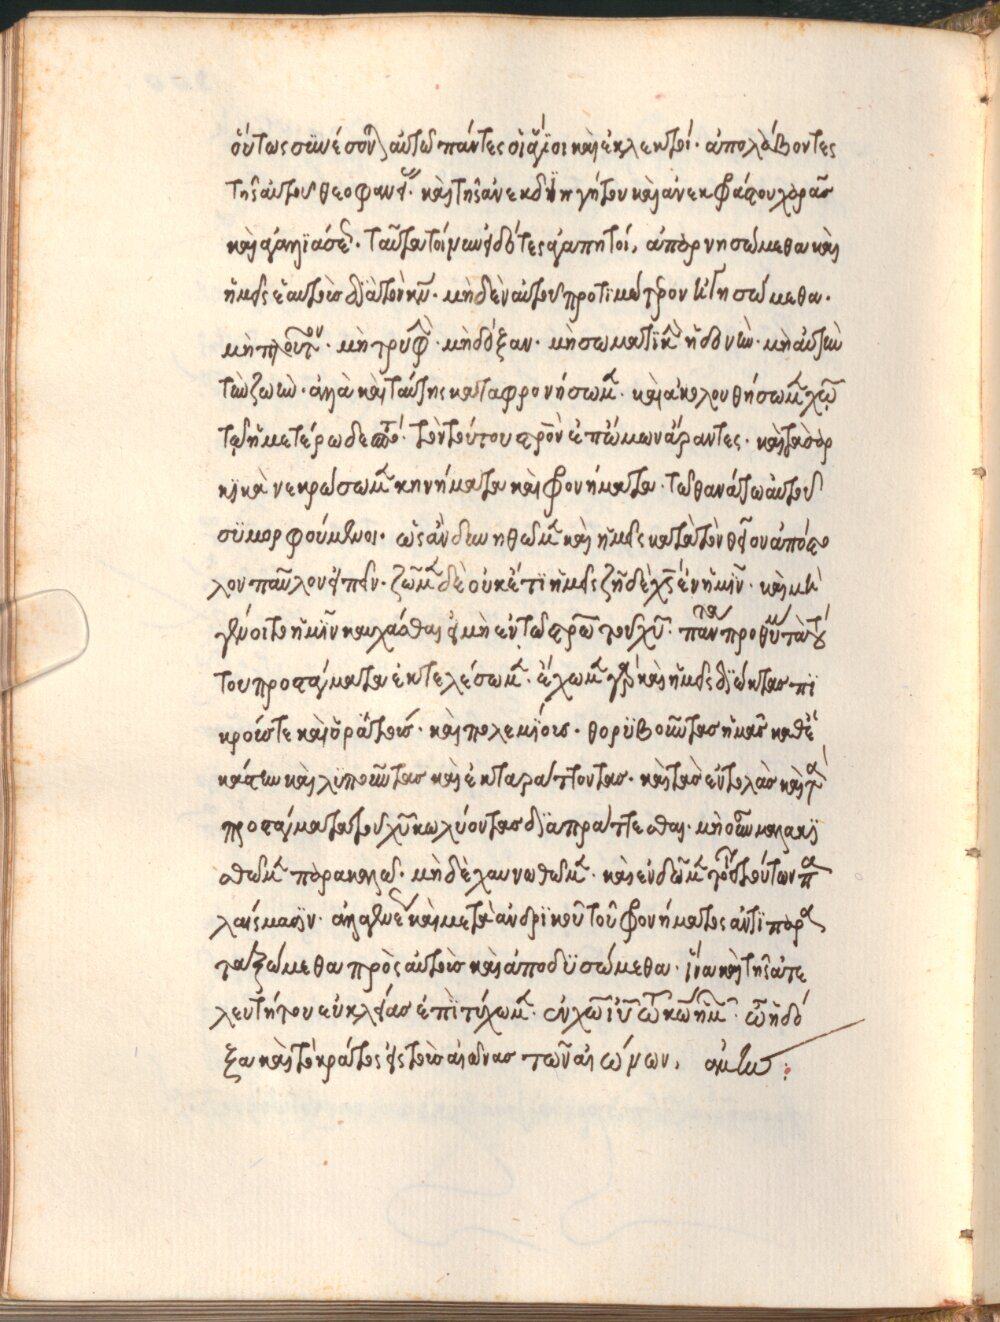 οὕτως σϊνέσονλ αὐτῶ πάντες οἱ ἅγιοι καὶ ἐκλεκτοί· ἀπολάβοντες
τῆς αὐτοῦ θεοφανεί· καὶ τῆς ἀνεκδϊηγήτου καὶ ἀνεκφράστου χαρᾶς
καὶ ἀγαλϊάσε. ταῦτα τοίνυν εἰδότες ἀγαπητοί, ἀπαρνησώμεθα καὶ
ἡμεῖς ἑαυτοὺς δϊὰ τὸν κν· μηδὲν αὐτοῦ προτιμώτερον κτησώμεθα·
μὴ πλοῦτον· μὴ τρυφὴ· μὴ δόξαν· μὴ σωματϊκὴ ἡδονὴν· μὴ αὐτὴν
τὴν ζωὴν· ἀλλὰ καὶ ταύτης καταφρονήσωμ· καὶ ἀκολουθήσωμ χω
τῶ ἡμετέρω δεσπό· τὸν τούτου σρὸν ἐπώμων ἄραντες· καὶ τὰ σαρ
κϊκὰ νεκρώσωμ κηνήματα καὶ φρονήματα· τῶ θανάτω αὐτοῦ
σϋμορφούμενοι· ὡς ἂν δυνηθῶμ καὶ ἡμεῖς κατὰ τὸν θεῖον ἀπόστο
λον παῦλον εἰπεῖν· ζῶμ δὲ οὐκέτϊ ἡμεῖς ζῆ δὲ χς ἐν ἡμῖν· καὶ μὴ
γένοιτο ἡμῖν καυχᾶσθαι εἰ μὴ ἐν τῶ σρω τοῦ χυ· πάντα προθύμ τὰ τού
του προστάγματα ἐκτελέσωμ· ἔχωμ γὰρ καὶ ἡμεῖς δϊώκτας πϊ
κρούς τε καὶ ἀοράτους· καὶ πολεμίους· θορϋβοῦντας ἡμᾶς καθ ἑ
κάστην καὶ λϋποῦντας καὶ ἐκταράττοντας· καὶ τὰς ἐντολὰς καὶ τὰ
προστάγματα τοῦ χυ κωλύοντας δϊαπράττεσθαι· μὴ οὖν μαλακϊ
σθῶμ παρακαλῶ· μὴ δὲ χαυνωθῶμ· καὶ ἐνδῶμ τοῖς τούτων πα
λαίσμασϊν· ἀλλὰ γενν καὶ μετὰ ἀνδρϊκοῦ τοῦ φρονήματος ἀντϊπαρα
ταξώμεθα πρὸς αὐτοὺς καὶ ἀποδϋσώμεθα· ἵνα καὶ τῆς ἀτε
λευτήτου εὐκλείας ἐπϊτύχωμ· ἐν χω ιυ τω κω ἡμ· ὧ ἡ δό
ξα καὶ τὸ κράτος εἰς τοὺς αἰῶνας τῶν αἰώνων, ἀμήν :